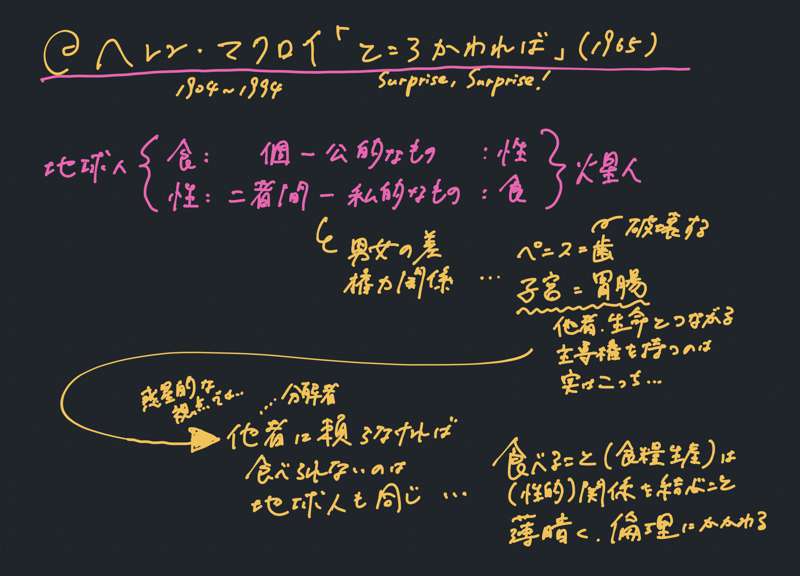 @ヘレン・マクロイ「ところかわれば」(1965)
1904~1994 Surprise, Surprise!
地球人 { 食: 個 ー 公的なもの :性 } 火星人
性: 二者間 ー 私的なもの :食
男女の差
権力関係 …
破壊する
ペニス=歯
子宮=胃腸
他者・生命とつながる
主導権を持つのは
実はこっち…
惑星的な
視点では…
…分解者
他者に頼らなければ
食べられないのは
地球人も同じ …
食べること(食糧生産)は
(性的)関係を結ぶこと
薄暗く、倫理にかかわる